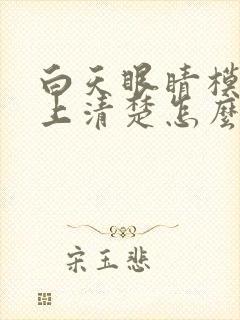 白天眼睛模
上清楚怎麼
宋玉悲